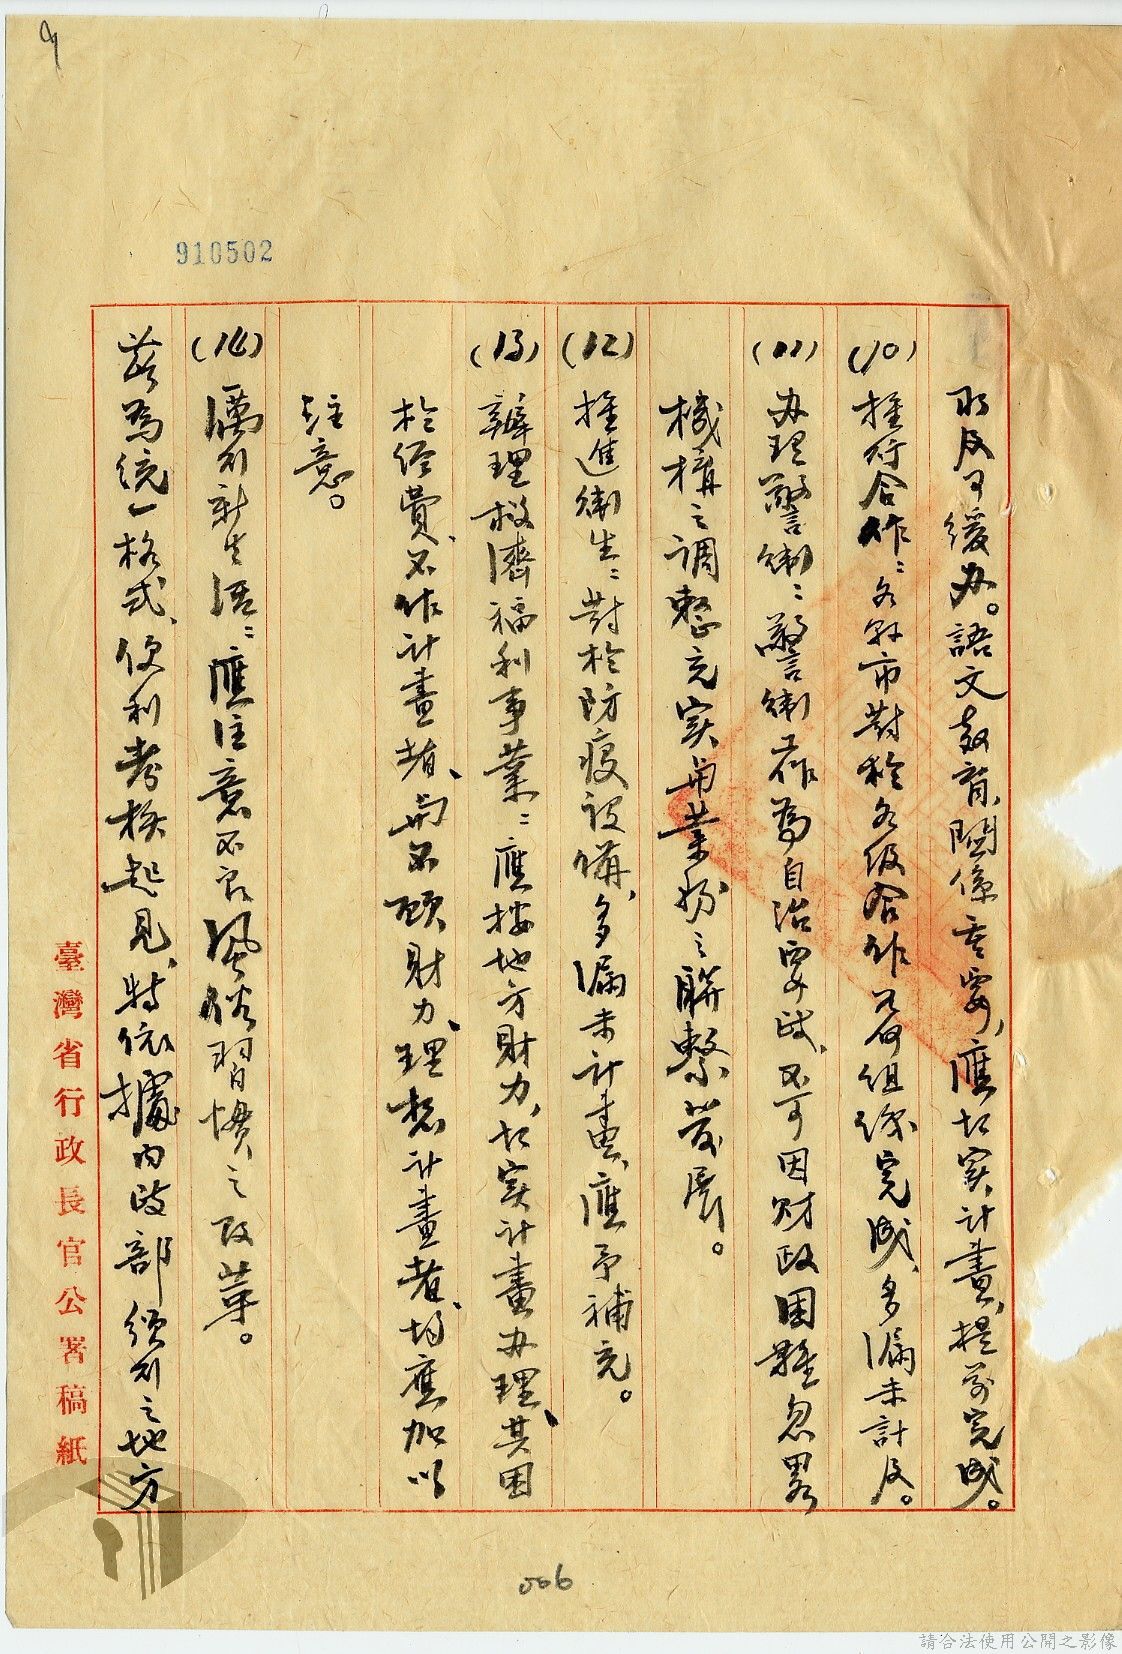 910502
可緩办。語文教育,關係重要,應切实計畫,提前完成。
(10) 推行合作:各縣市對於各級合作組織完成,多漏未計及。
(11) 办理警衛:警衛為自治要政,不可因財政困難忽畧
機構之調整充实與業務之聯繫發展。
(12) 推進衛生:對於防疫設備,多漏未計畫,應予補充。
(13) 辦理救濟福利事業:應按地方財力,切实計畫办理、其因
於經費、不作計畫者、與不顧財力、理想計畫者、均應加以
注意。
(14) 厲行新生活:應注意不良風俗習慣之改革。
茲為統一格式、便利考核起見、特依據內政部頒行之地方
臺灣省行政長官公署稿紙
006
請合法使用公開之影像